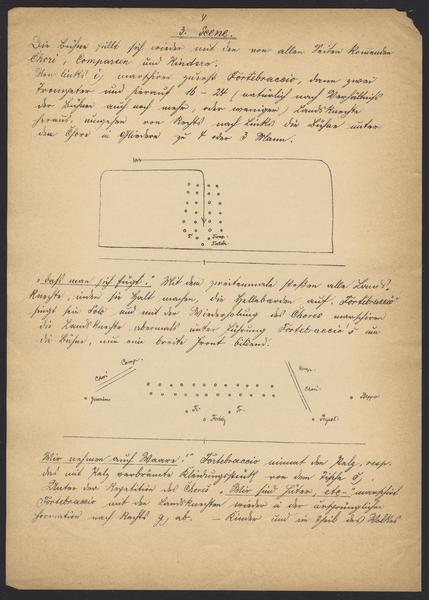 4
3. Scene.
Die Bühne füllt sich wieder mit den von allen Seiten kommenden
Chori, Comparsen und Kindern.
Von links i, marschiren zuerst Fortebraccio, dann zwei
Trompeter und hierauf 16 - 24 (natürlich nach Verhältniss
der Bühne auch noch mehr, oder weniger) Landsknechte
heraus, umgehen von Rechts nach Links die Bühne unter
dem Chore in Gliedern zu 4 oder 3 Mann.
T. Tromp.
Forteb.
"daß man sich fügt." Mit dem zweitenmale stoßen alle Lands-
knechte, indem sie Halt machen, die Hellebarden auf. Fortebraccio
singt sein Solo und mit der Wiederholung des Chores marschiren
die Landsknechte abermals unter Führung Fortebraccio's um
die Bühne, nun eine breite Front bildend.
Comp.
Chori
Comp.
Chori
Tr. Tr.
Forteb.
"Wir nehmen auch Waare!" Fortebraccio nimmt den Pelz, resp.
das mit Pelz verbrämte Kleidungsstück von dem Tische
Unter der Repetition des Chores "Wir sind Hüter, etc." marschirt
Fortebraccio mit den Landsknechten wieder in der ursprünglichen
Formation nach Rechts g, ab. — Kinder und ein Theil des Volkes